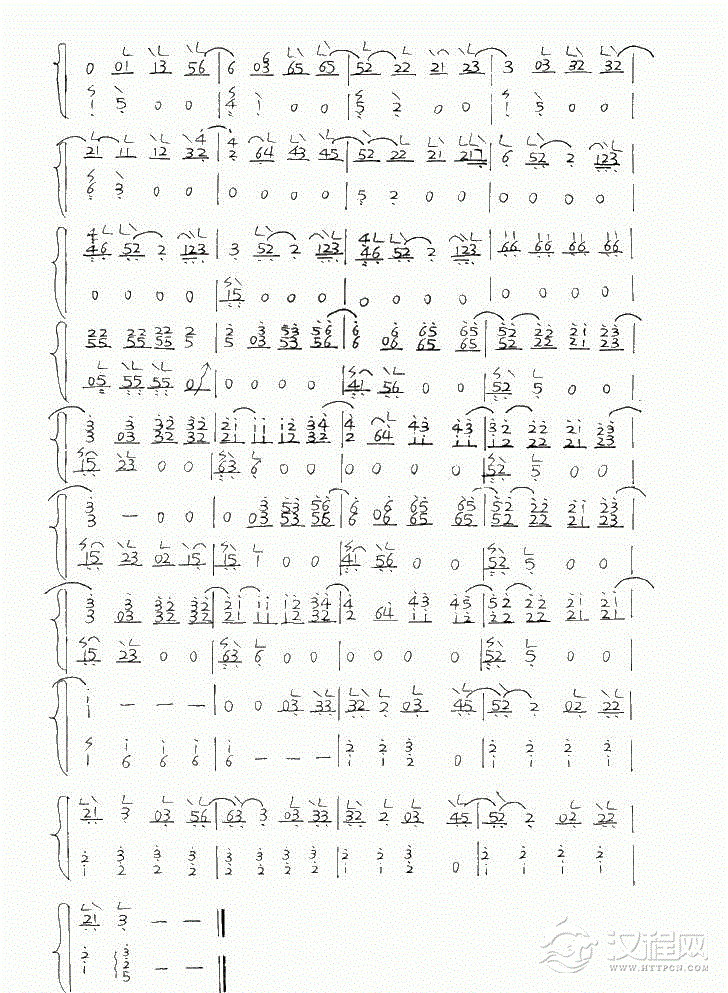 0 01 13 56 | 6 03 65 65 | 52 22 21 23 | 3 03 32 32 |
1 5 0 0 | 4 1 0 0 | 5 2 0 0 | 1 5 0 0 |
21 11 12 32 | 2 64 43 45 | 52 22 21 217 | 6 52 2 123 |
6 3 0 0 | 0 0 0 0 | 5 2 0 0 | 0 0 0 0 |
46 52 2 123 | 3 52 2 123 | 46 52 2 123 | 66 66 66 66 |
0 0 0 0 | 15 0 0 0 | 0 0 0 0 | 0 0 0 0
22 22 22 2 | 2 3 53 56 | 6 6 65 65 | 52 22 21 23 |
55 55 55 5 | 5 03 53 56 | 6 06 65 65 | 52 22 21 23 |
05 55 55 0 | 0 0 0 0 | 41 56 0 0 | 52 5 0 0 |
3 3 32 32 | 21 11 12 34 | 4 43 43 | 52 22 21 23 |
3 03 32 32 | 21 11 12 32 | 2 64 11 11 | 12 22 21 23 |
15 23 0 0 | 63 6 0 0 | 0 0 0 0 | 52 5 0 0 |
3 — 0 0 | 0 03 53 56 | 6 06 65 65 | 52 22 21 23 |
15 23 02 15 | 15 1 0 0 | 41 56 0 0 | 52 5 0 0 |
3 03 32 32 | 21 11 12 32 | 2 64 11 | 52 22 21 21 |
15 23 0 0 | 63 6 0 0 | 0 0 0 0 | 52 5 0 0 |
1 — — — | 0 0 03 33 | 32 2 03 45 | 52 2 02 22 |
1 6 6 6 | 6 — — — | 2 2 3 0 | 2 2 2 2 |
21 3 03 56 | 63 3 03 33 | 32 2 03 45 | 52 2 02 22 |
2 3 3 3 | 3 3 3 3 | 2 2 3 0 | 2 2 2 2 |
1 2 2 2 | 2 2 2 2 | 1 1 2 | 1 1 1 1 |
21 3 — —
2 3 — —
1 2
5
汉程网
WWW.HTTPCN.COM